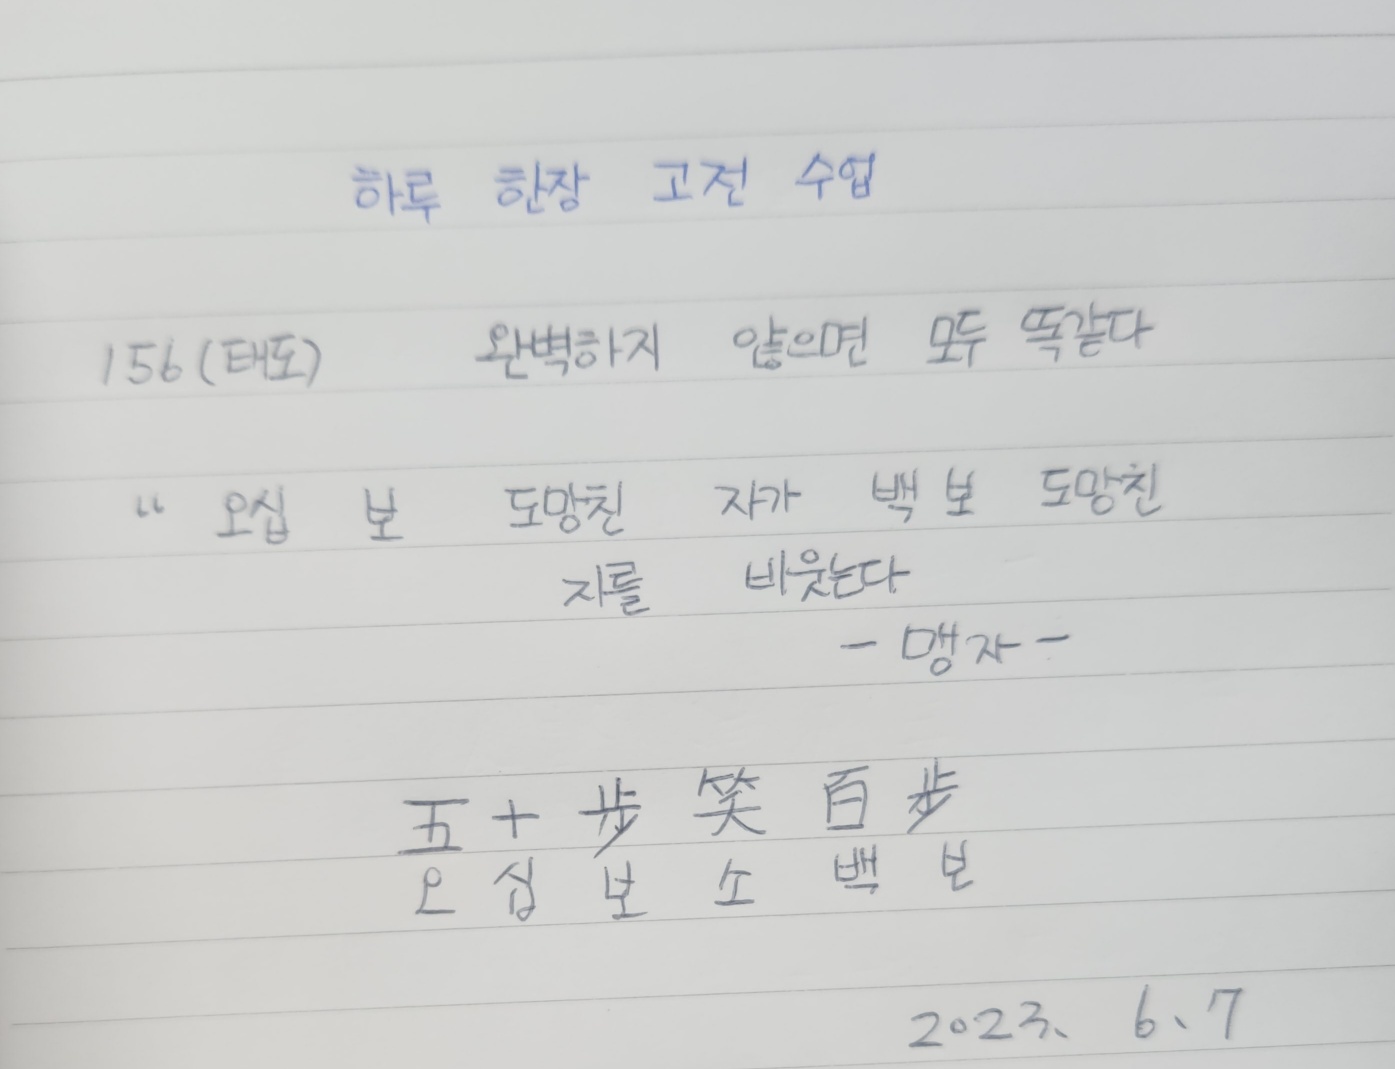 하루 한장 고전 수업
156 (태도) 완벽하지 않으면 모두 똑같다
“ 오십 보 도망친 자가 백 보 도망친
자를 비웃는다
- 맹자 -
五 十 步 笑 百 步
오 십 보 소 백 보
2023. 6. 7